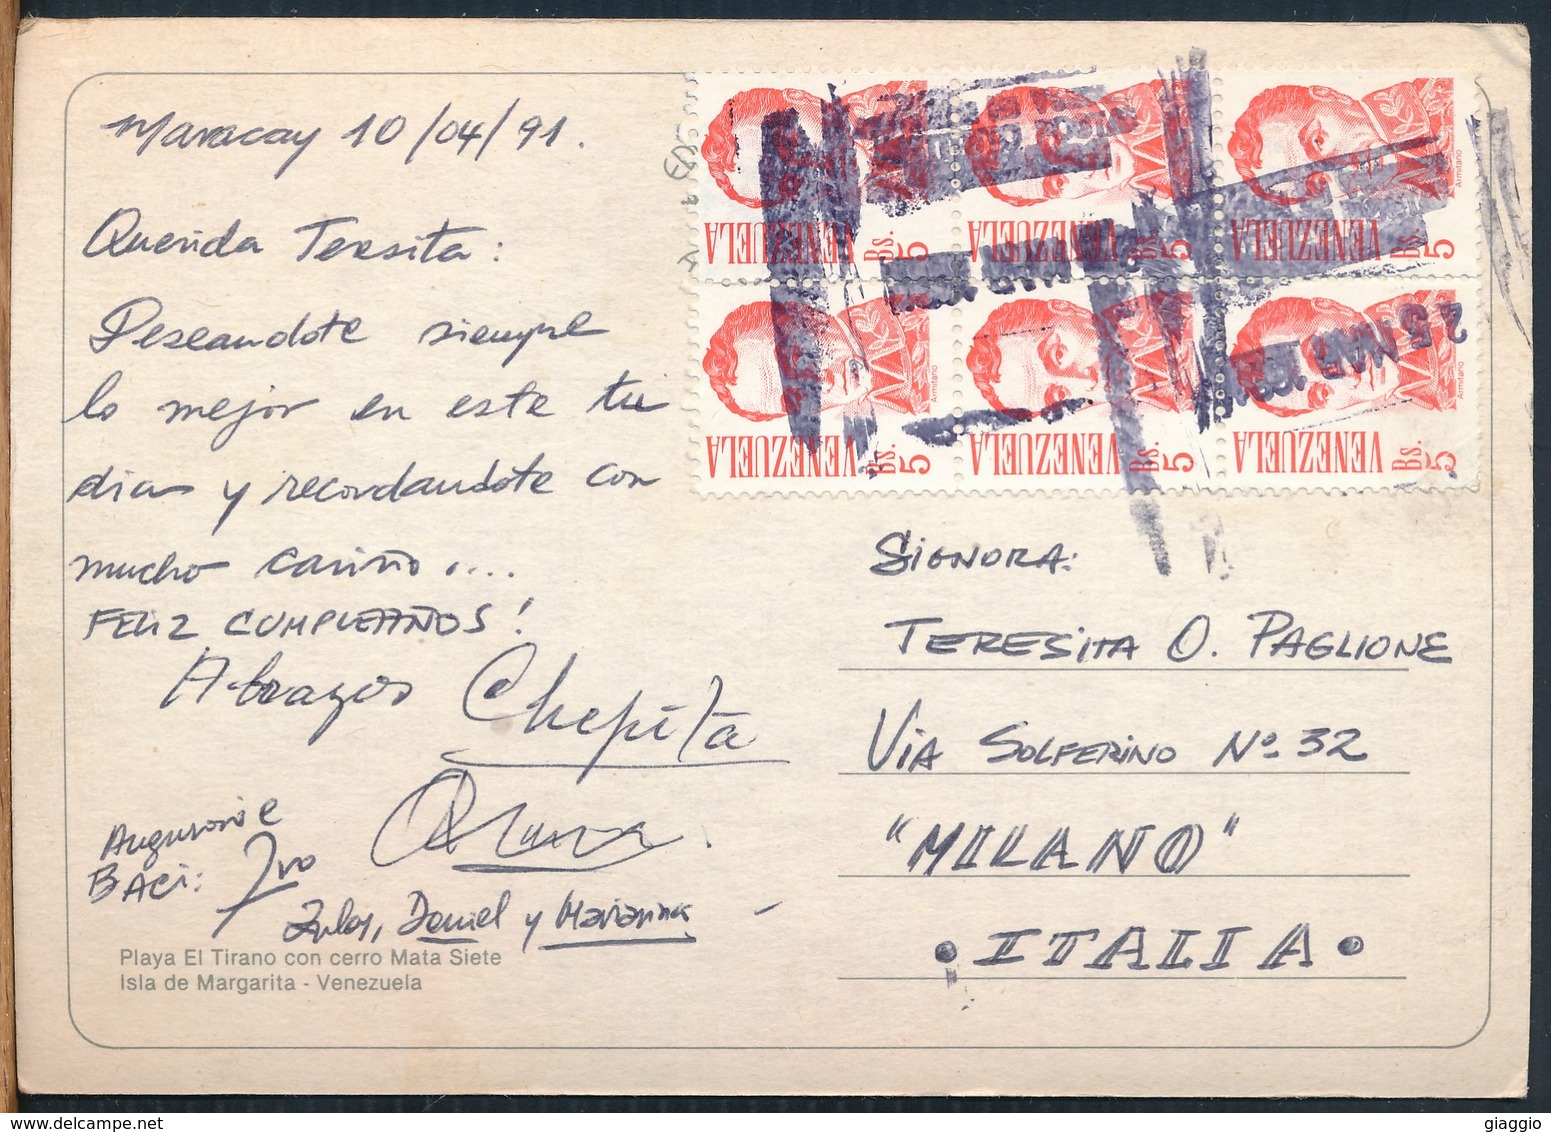 Maracay 10/04/91.
Querida Tersita:
Deseandote siempre
lo mejor en este tu
dia y recordandote con
mucho cariño....
FELIZ CUMPLEAÑOS!
Abrazos Chepita
Auguroni e
BACi: Ivo
Daniel y Marianna
Playa El Tirano con cerro Mata Siete
Isla de Margarita - Venezuela
VENEZUELA Bs. 5
VENEZUELA Bs. 5
VENEZUELA Bs. 5 Armitano
VENEZUELA Bs. 5 Armitano
VENEZUELA Bs. 5
VENEZUELA Bs. 5 Armitano
25 MAR 1991
SiGNORA:
TERESiTA O. PAGLIONE
ViA SOLFERiNO Nº 32
"MILANO"
•ITALIA•
giaggio